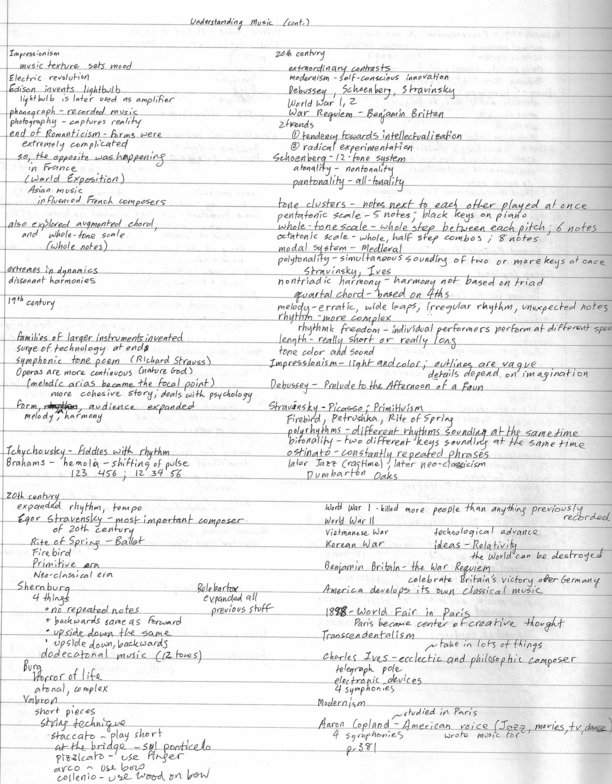 Understanding Music (cont.)
Impressionism
music texture sets mood
Electric revolution
Edison invents lightbulb
lightbulb is later used as amplifier
phonograph - recorded music
photography - captures reality
end of Romanticism - forms were
extremely complicated
so, the opposite was happening
in France
(World Exposition)
Asian music
influenced French composers
also explored augmented chord,
and whole-tone scale
(whole notes)
extremes in dynamics
dissonant harmonies
19th century
families of larger instruments invented
surge of technology at end
symphonic tone poem (Richard Strauss)
Operas are more continuous
(melodic arias became the focal point)
more cohesive story; deals with psychology
form, audience expanded
melody, harmony
Tchychovsky - fiddles with rhythm
Brahams - hemola - shifting of pulse
123 456 ; 12 34 56
20th century
extraordinary contrasts
modernism - self-conscious innovation
Debussey, Schoenberg, Stravinsky
World War 1, 2
War Requiem - Benjamin Britten
2 trends
① tendency towards intellectualization
② radical experimentation
Schoenberg - 12-tone system
atonality - nontonality
pantonality - all-tonality
tone clusters - notes next to each other played at once
pentatonic scale - 5 notes; black keys on piano
whole-tone scale - whole step between each pitch; 6 notes
octatonic scale - whole, half step combos; 8 notes
modal system - Medieval
polytonality - simultaneous sounding of two or more keys at once
Stravinsky, Ives
nontriadic harmony - harmony not based on triad
quartal chord - based on 4ths
melody - erratic, wide leaps, irregular rhythm, unexpected notes
rhythm - more complex
rhythmic freedom - individual performers perform at different
length - really short or really long
tone color and sound
Impressionism - light and color; outlines are vague
details depend on imagination
Debussey - Prelude to the Afternoon of a Faun
Stravinsky - Picasso; Primitivism
Firebird, Petrushka, Rite of Spring
polyrhythms - different rhythms sounding at the same time
bitonality - two different keys sounding at the same time
ostinato - constantly repeated phrases
later Jazz (ragtime); later neo-classicism
Dumbarton Oaks
20th century
expanded rhythm, tempo
Egor Stravensky - most important composer
of 20th century
Rite of Spring - Ballet
Firebird
Primitive era
Neo-classical era
Shernburg
4 things
• no repeated notes
• backwards same as forward
• upside down the same
• upside down, backwards
dodecatonal music (12 tones)
Belabartox
expanded all
previous stuff
Burg
Horror of life
atonal, complex
Vabran
short pieces
string technique
staccato - play short
at the bridge - sul ponticelo
pizzicato - use finger
arco - use bow
collenio - use wood on bow
World War I - killed more people than anything previously
recorded
World War II
Vietmanese War technological advance
Korean War ideas - Relativity
the World can be destroyed
Benjamin Britain - the War Requiem
celebrate Britain's victory over Germany
America develops its own classical music
1898 - World Fair in Paris
Paris became center of creative thought
Transcendentalism
take in lots of things
Charles Ives - ecclectic and philosophic composer
telegraph pole
electronic devices
4 symphonies
Modernism
studied in Paris
Aaron Copland - American voice (Jazz, movies, tv, dance)
4 symphonies wrote music for
p.381